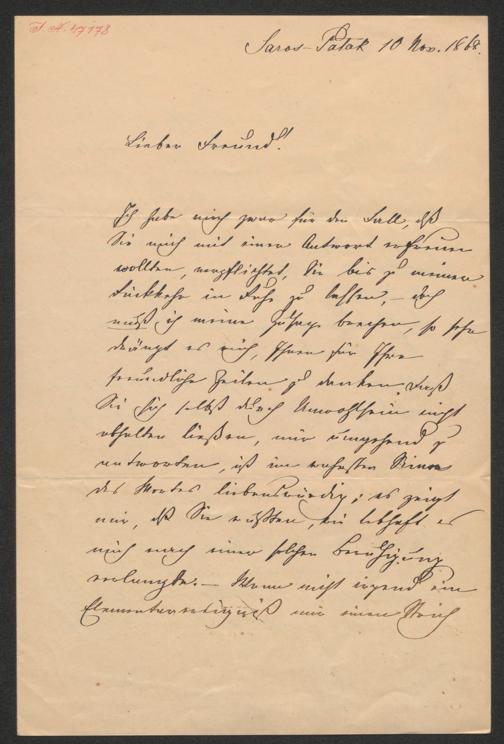 J. N. 47178
Saros-Patak 10 Nov. 1868.
Lieber Freund!
Ich habe mich zwar für den Fall, daß
Sie mich mit einer Antwort erfreuen
wollten, verpflichtet, Sie bis zu meiner
Rückkehr in Ruhe zu lassen, – doch
muß ich meine Zusage brechen, so sehr
drängt es mich, Ihnen für Ihre
freundliche Zeilen zu danken. Daß
Sie sich selbst durch Unwohlsein nicht
abhalten ließen, mir umgehend zu
antworten, ist im wahrsten Sinne
des Wortes liebenswürdig; es zeigt
mir, daß Sie wußten, wie lebhaft es
mich nach einer solchen Beruhigung
verlangte. – Wenn nicht irgend ein
Elementarereigniß mir einen Strich